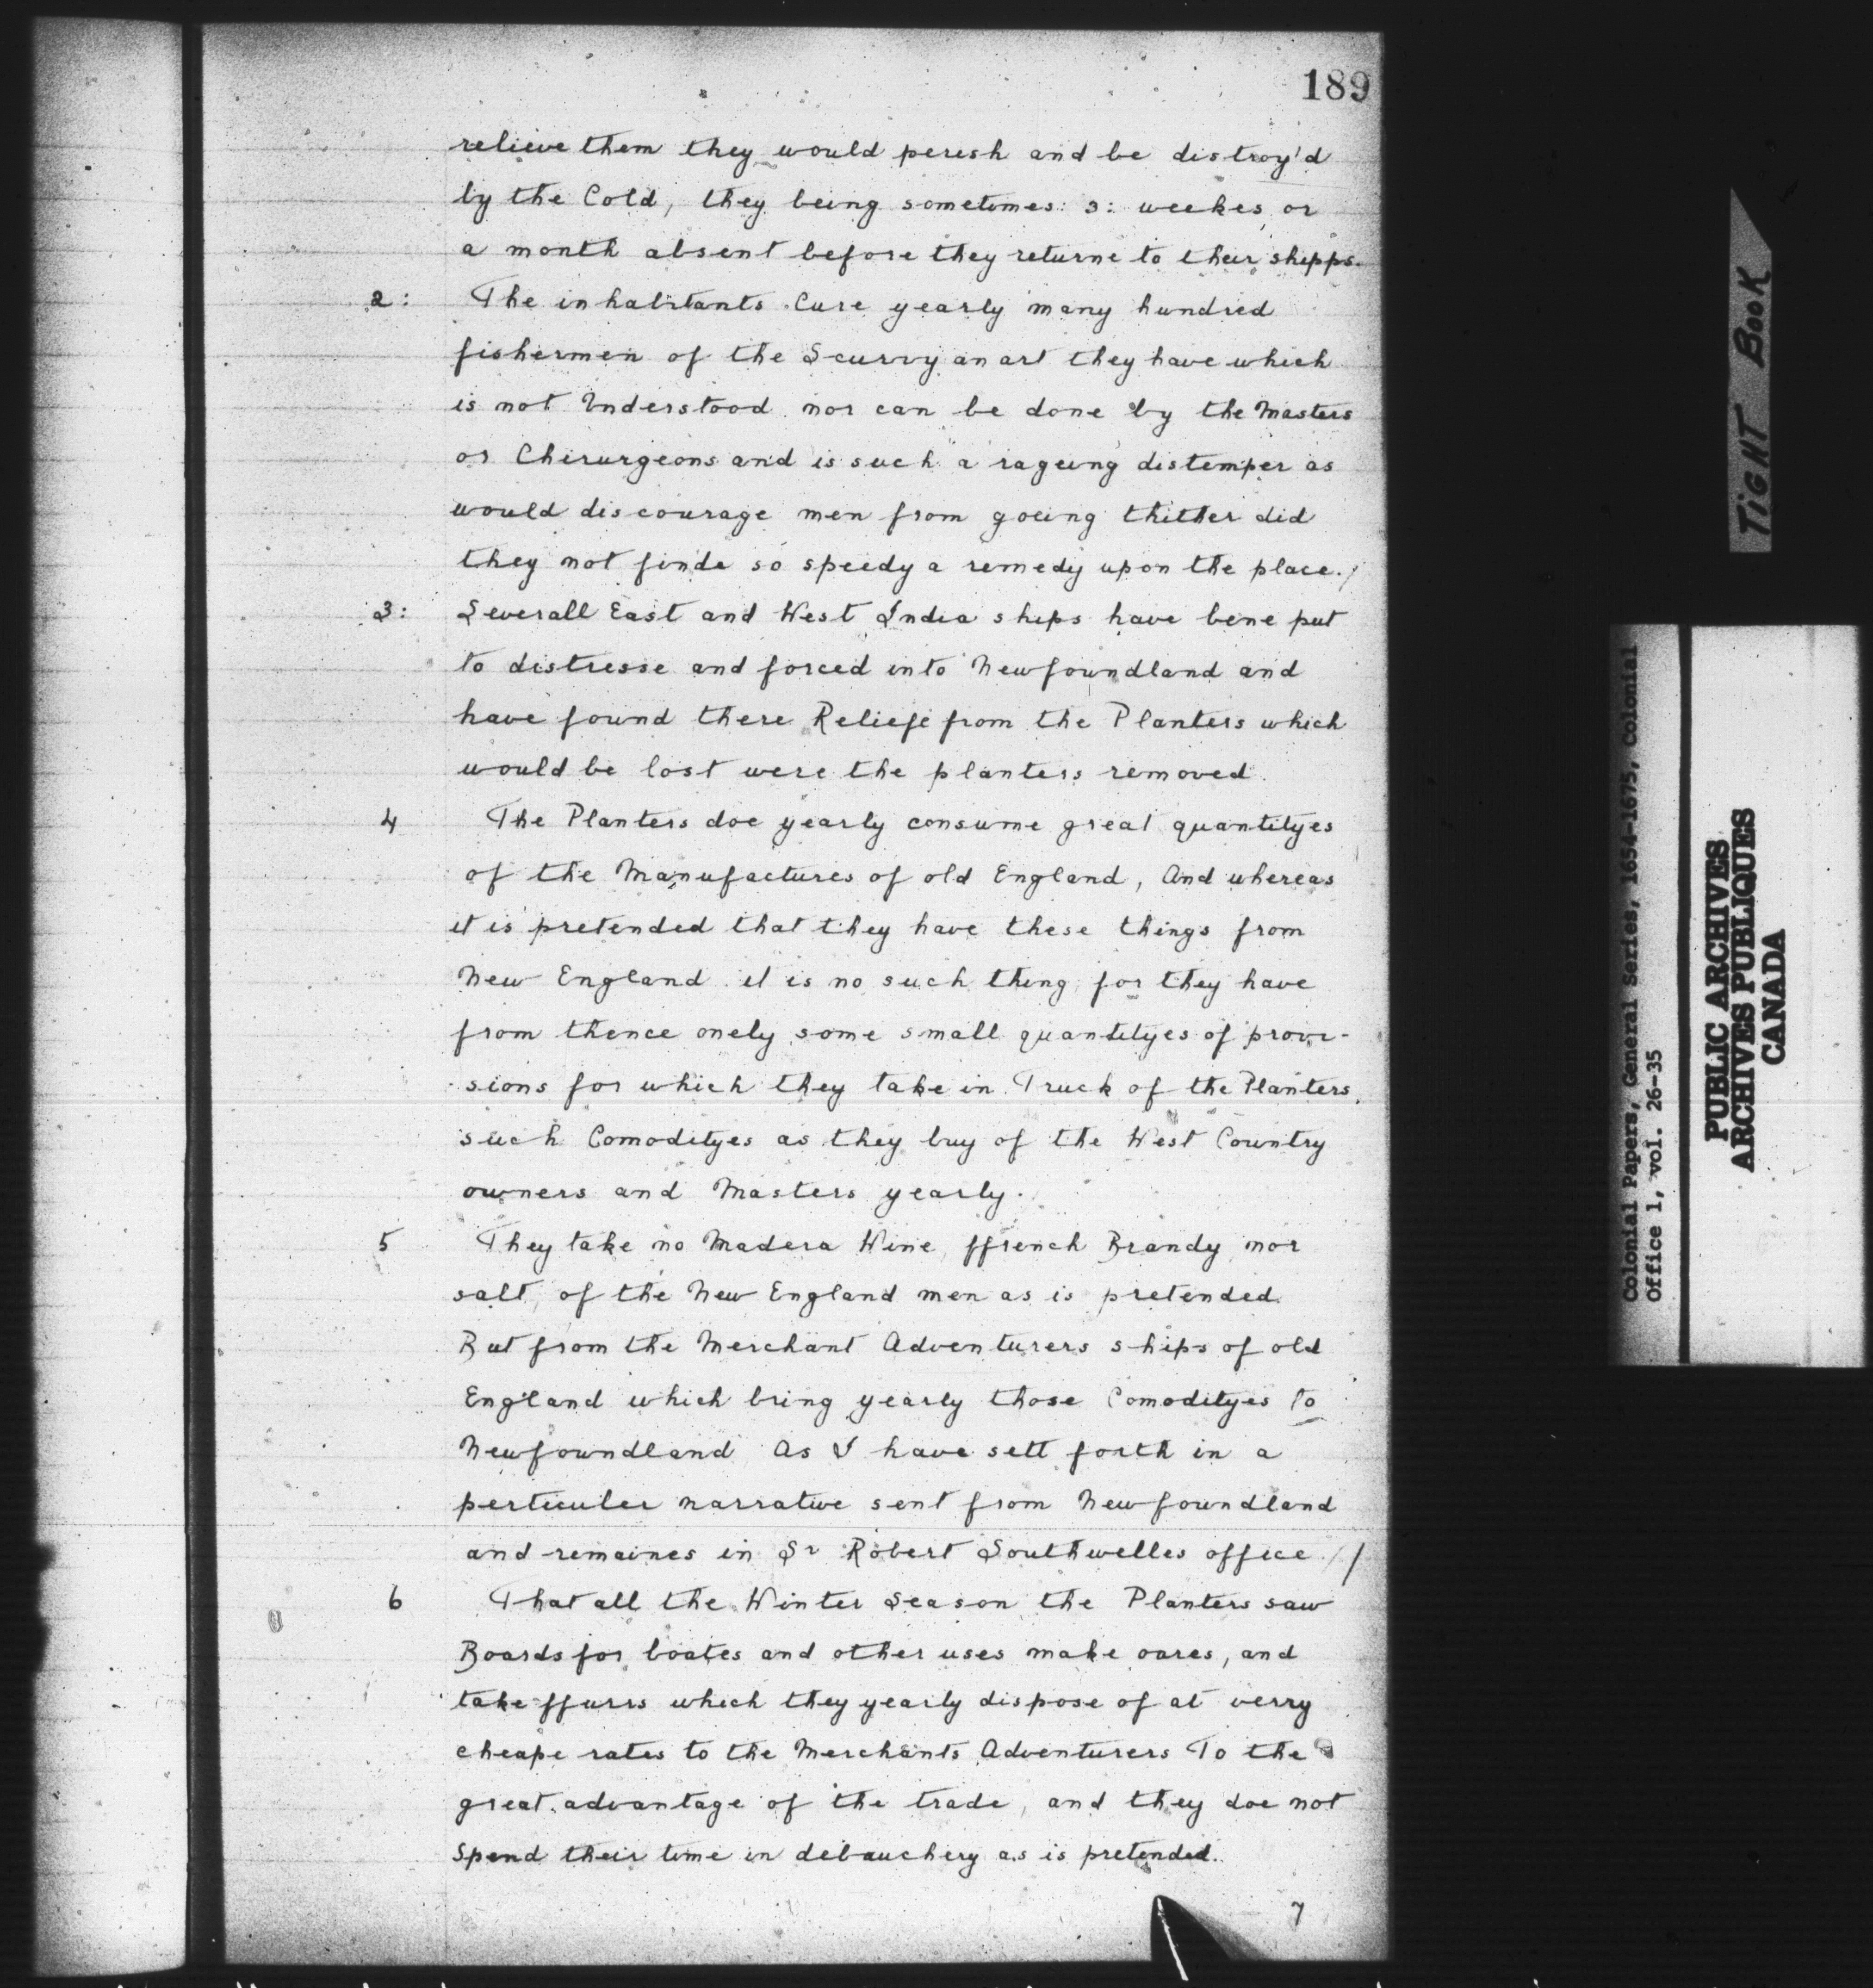 189
relieve them they would perish and be distroy'd
by the Cold, they being sometimes: 3: weekes or
a month absent before they returne to their shipps.
2: The inhabitants Cure yearly many hundred
fishermen of the Scurvy an art they have which
is not Understood nor can be done by the Masters
or Chirurgeons and is such a rageing distemper as
would discourage men from goeing thither did
they not finde so speedy a remedy upon the place./
3: Severall East and West India ships have bene put
to distresse and forced into Newfoundland and
have found there Reliefe from the Planters which
would be lost were the planters removed.
4 The Planters doe yearly consume great quantityes
of the Manufactures of old England, And whereas
it is pretended that they have these things from
New England it is no such thing for they have
from thence onely some small quantityes of provi-
sions for which they take in Truck of the Planters,
such Comodityes as they buy of the West Country
owners and Masters yearly.
5 They take no Madera Wine, ffrench Brandy nor
salt of the New England men as is pretended.
But from the Merchant Adventurers ships of old
England which bring yearly those Comodityes to
Newfoundland As I have sett forth in a
perticuler narrative sent from Newfoundland
and remaines in Sr Robert Southwelles office //
6 That all the Winter Season the Planters saw
Boards for boates and other uses make oares, and
take ffurrs which they yearly dispose of at verry
cheape rates to the Merchants Adventurers To the
great advantage of the trade, and they doe not
spend their time in debauchery as is pretended.
7
TIGHT BOOK
Colonial Papers, General Series, 1654-1675, Colonial
Office 1, vol. 26-35
PUBLIC ARCHIVES
ARCHIVES PUBLIQUES
CANADA